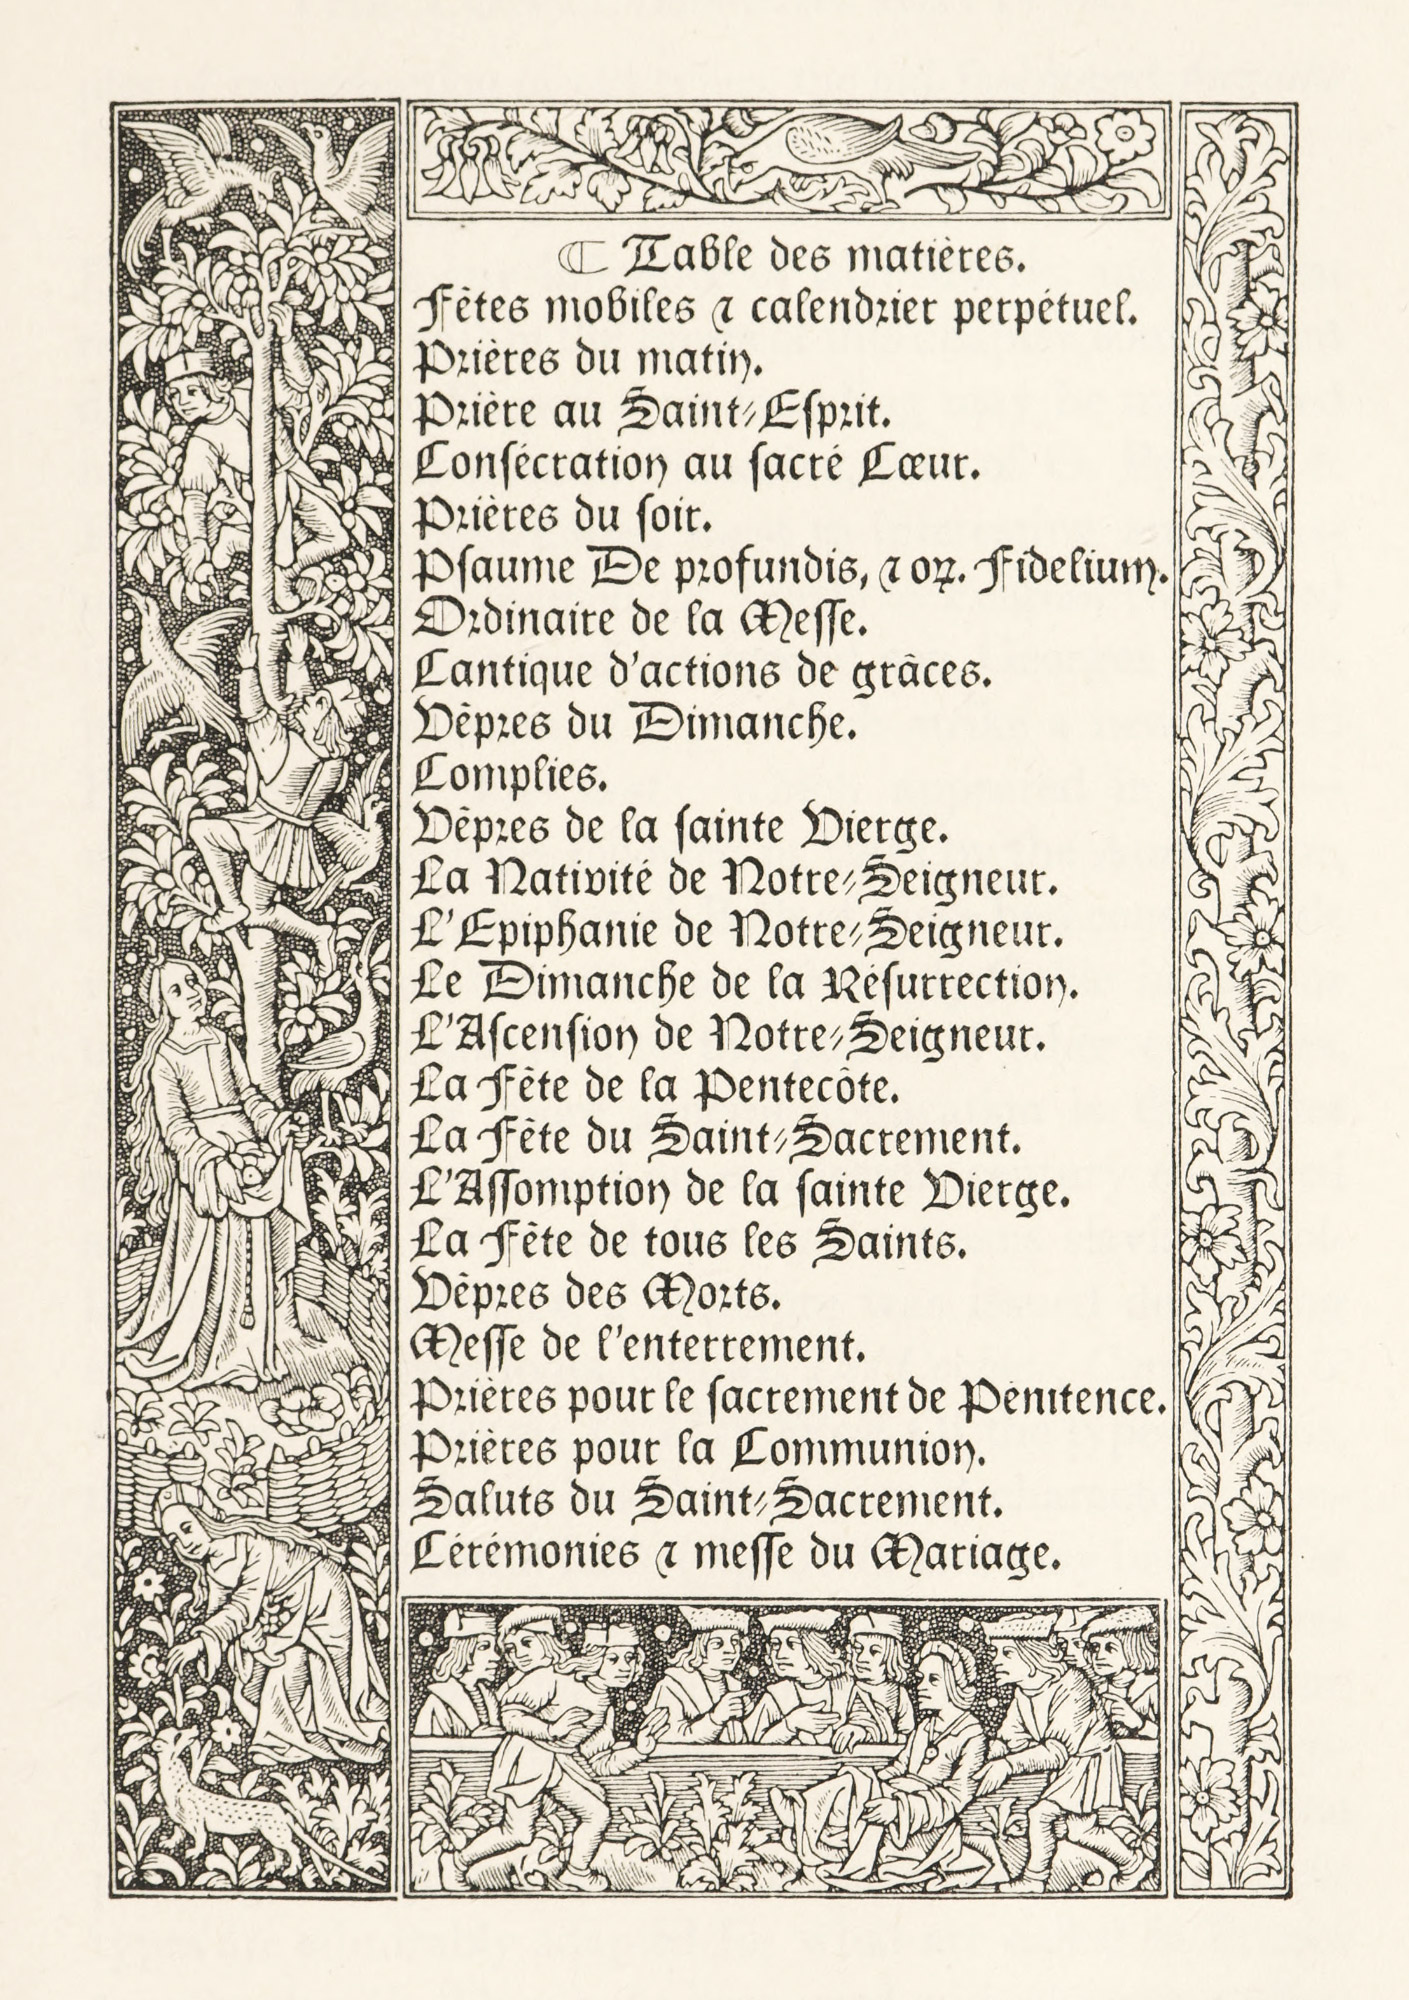 ☾ Table des matières.
Fêtes mobiles ⁊ calendrier perpétuel.
Prières du matin.
Prière au Saint⸗Eſprit.
Conſécration au ſacré Cœur.
Prières du ſoir.
Pſaume De profundis, ⁊ oꝝ. Fidelium.
Ordinaire de la Meſſe.
Cantique d'actions de grâces.
Vêpres du Dimanche.
Complies.
Vêpres de la ſainte Vierge.
La Nativité de Notre⸗Seigneur.
L'Epiphanie de Notre⸗Seigneur.
Le Dimanche de la Réſurrection.
L'Aſcenſion de Notre⸗Seigneur.
La Fête de la Pentecôte.
La Fête du Saint⸗Sacrement.
L'Aſſomption de la ſainte Vierge.
La Fête de tous les Saints.
Vêpres des Morts.
Meſſe de l'enterrement.
Prières pour le ſacrement de Pénitence.
Prières pour la Communion.
Saluts du Saint⸗Sacrement.
Cérémonies ⁊ meſſe du Mariage.